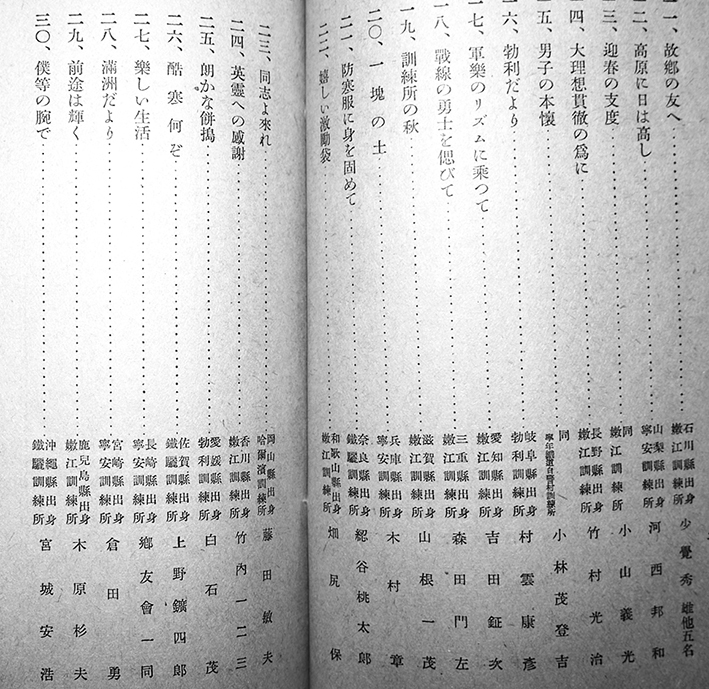 一一、故鄕の友へ 石川縣出身 嫩江訓練所 少覺秀雄他五名
一二、高原に日は高し 山梨縣出身 寧安訓練所 河西邦和
一三、迎春の支度 同 嫩江訓練所 小山義光
一四、大理想貫徹の爲に 長野縣出身 嫩江訓練所 竹村光治
一五、男子の本懷 同 訓練所 小林茂登吉
一六、勃利だより 岐阜縣出身 勃利訓練所 村雲康彥
一七、軍樂のリズムに乘つて 愛知縣出身 嫩江訓練所 吉田鉦次
一八、戰線の勇士を偲びて 三重縣出身 嫩江訓練所 森田門左
一九、訓練所の秋 滋賀縣出身 嫩江訓練所 山根一茂
二〇、一塊の土 兵庫縣出身 寧安訓練所 木村章
二一、防寒服に身を固めて 奈良縣出身 鐵驪訓練所 谷桃太郞
二二、嬉しい激勵袋 和歌山縣出身 嫩江訓練所 畑尻保
二三、同志よ來れ 岡山縣出身 哈爾濱訓練所 藤田敏夫
二四、英靈への感謝 香川縣出身 嫩江訓練所 竹內一二三
二五、朗かな餅搗 愛媛縣出身 勃利訓練所 白石茂
二六、酷寒何ぞ 佐賀縣出身 鐵驪訓練所 上野鑛四郞
二七、樂しい生活 長崎縣出身 寧安訓練所 鄕友會一同
二八、滿洲だより 宮崎縣出身 寧安訓練所 倉田勇
二九、前途は輝く 鹿兒島縣出身 嫩江訓練所 木原杉夫
三〇、僕等の腕で 沖繩縣出身 鐵驪訓練所 宮城安浩